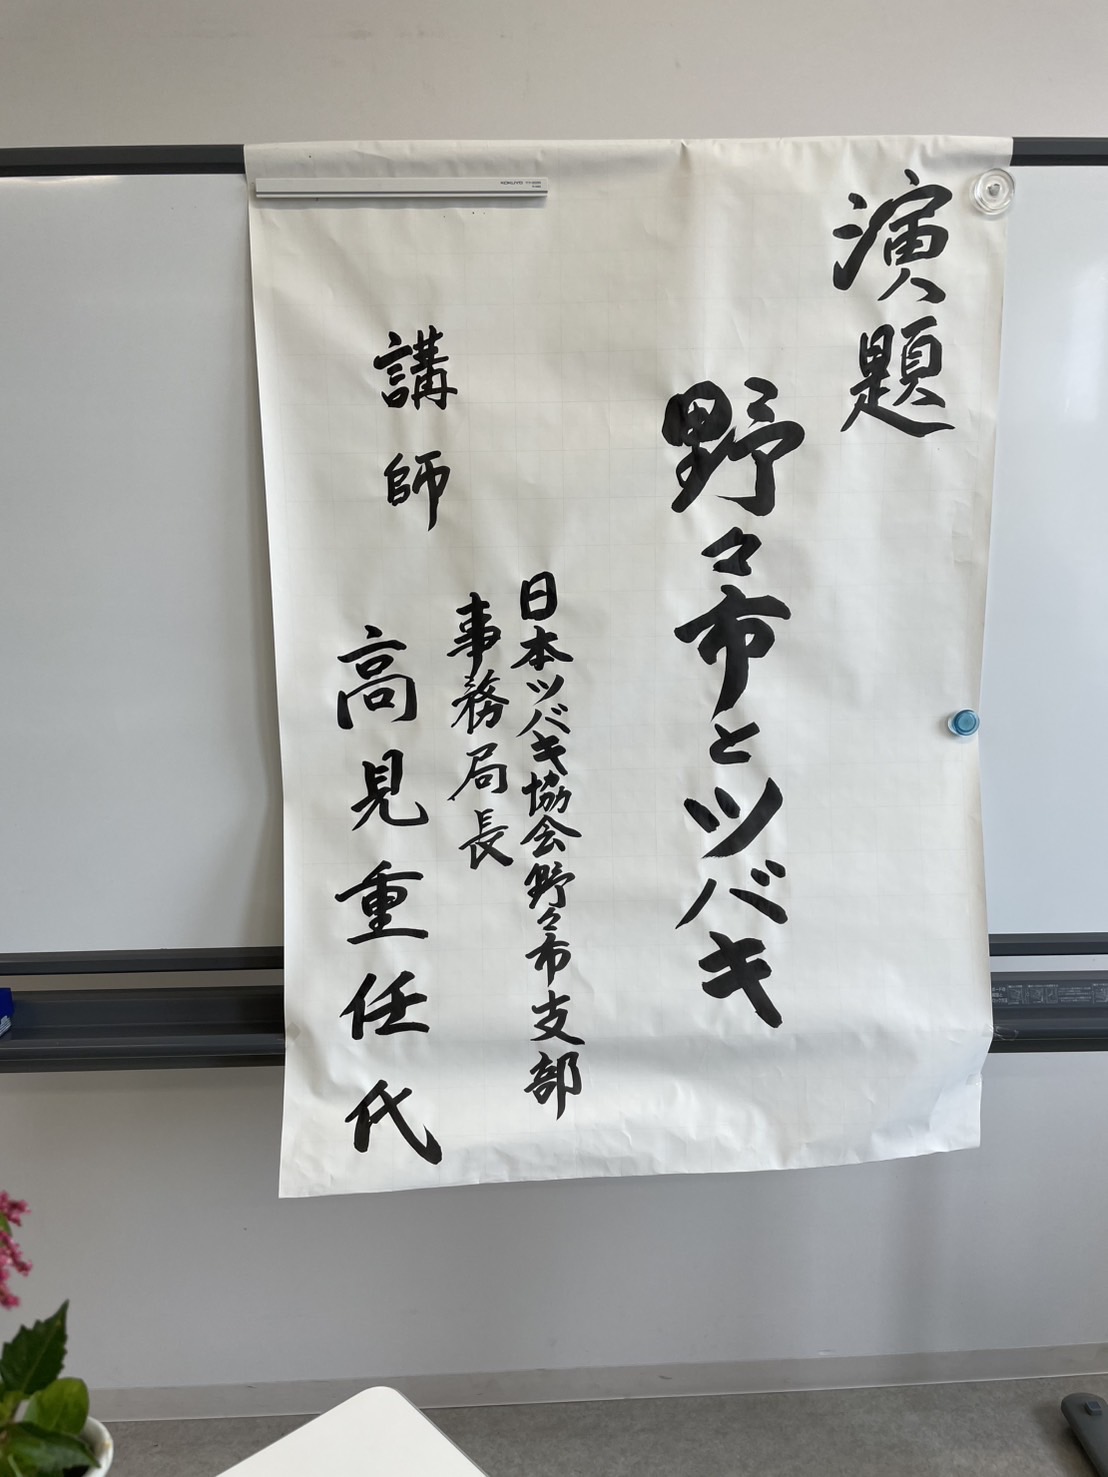 演題
野々市とツバキ
日本ツバキ協会野々市支部
事務局長
講師
高見重任代
KOKUYO